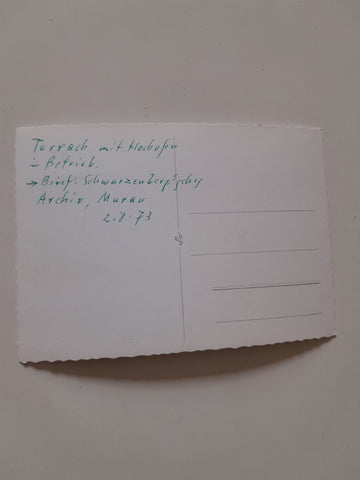 Turrach mit Hochofen
in Betrieb.
→ Brief: Schwarzenberg'sches
Archiv, Murau
2.8.73